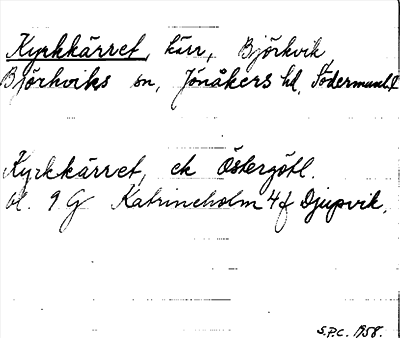 Kyrkkärret, kärr, Björkvik
Björkviks sn, Jönåkers hd, Södermanl.
Kyrkkärret, ek Östergötl.
bl. 9 G Katrineholm 4 f Djupvik.
S.P.C. 1958.